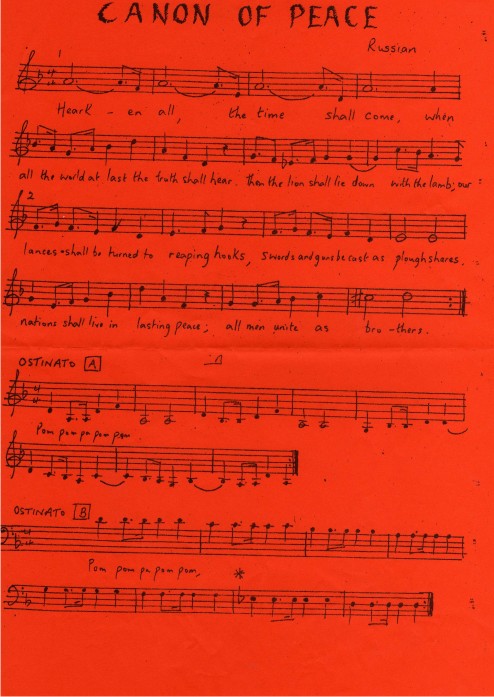 CANON OF PEACE
Russian
1
Heark - en all, the time shall come, when
all the world at last the truth shall hear. Then the lion shall lie down with the lamb; our
2
lances shall be turned to reaping hooks, swords and guns be cast as ploughshares.
nations shall live in lasting peace; all men unite as bro-thers.
OSTINATO A
Pom pom pa pom pom
OSTINATO B
Pom pom pa pom pom,
*